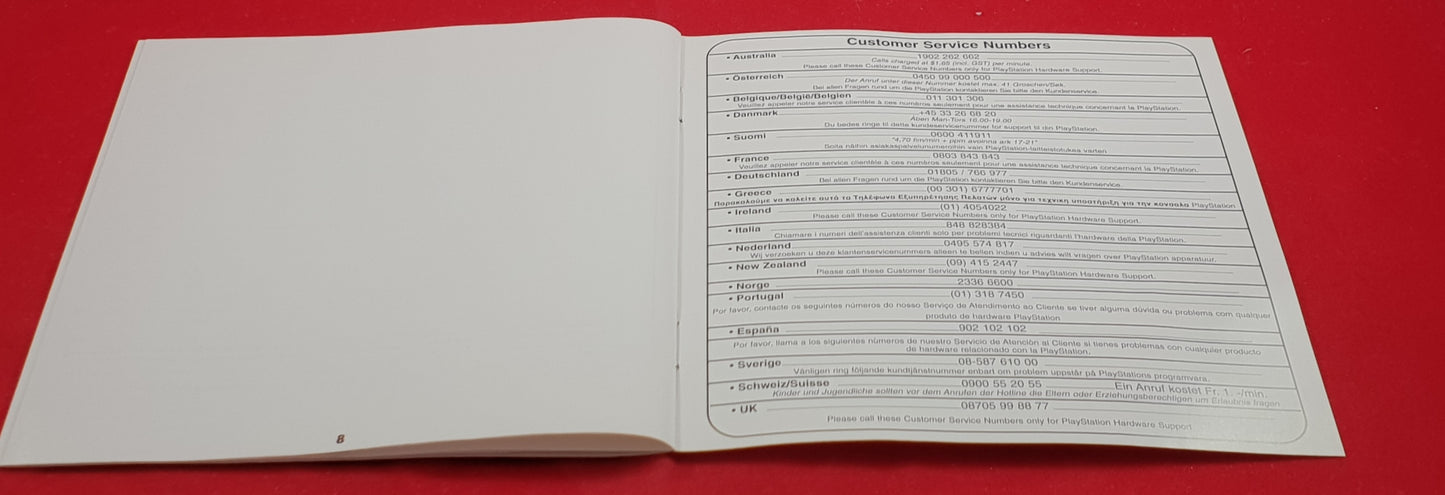 8
Customer Service Numbers
• Australia 1902 262 662
Calls charged at $1.65 (incl. GST) per minute.
Please call these Customer Service Numbers only for PlayStation Hardware Support.
• Österreich 0450 99 000 500
Der Anruf unter dieser Nummer kostet max. 41 Groschen/Sek.
Bei allen Fragen rund um die PlayStation kontaktieren Sie bitte den Kundenservice.
• Belgique/België/Belgien 011 301 306
Veuillez appeler notre service clientèle à ces numéros seulement pour une assistance technique concernant la PlayStation.
• Danmark +45 33 26 68 20
Åben Man-Tors 18.00-19.00
Du bedes ringe til dette kundeservicenummer for support til din PlayStation.
• Suomi 0600 411911
"4,70 fim/min + ppm avoinna ark 17-21"
Soita näihin asiakaspalvelunumeroihin vain PlayStation-laitteistotukea varten
• France 0803 843 843
Veuillez appeler notre service clientèle à ces numéros seulement pour une assistance technique concernant la PlayStation.
• Deutschland 01805 / 766 977
Bei allen Fragen rund um die PlayStation kontaktieren Sie bitte den Kundenservice.
• Greece (00 301) 6777701
Παρακαλούμε να καλείτε αυτά τα Τηλέφωνα Εξυπηρέτησης Πελατών μόνο για τεχνική υποστήριξη για την κονσόλα PlayStation
• Ireland (01) 4054022
Please call these Customer Service Numbers only for PlayStation Hardware Support.
• Italia 848 828384
Chiamare i numeri dell'assistenza clienti solo per problemi tecnici riguardanti l'hardware della PlayStation.
• Nederland 0495 574 817
Wij verzoeken u deze klantenservicenummers alleen te bellen indien u advies wilt vragen over PlayStation apparatuur.
• New Zealand (09) 415 2447
Please call these Customer Service Numbers only for PlayStation Hardware Support.
• Norge 2336 6600
• Portugal (01) 318 7450
Por favor, contacte os seguintes números do nosso Serviço de Atendimento ao Cliente se tiver alguma dúvida ou problema com qualquer
produto de hardware PlayStation
• España 902 102 102
Por favor, llama a los siguientes números de nuestro Servicio de Atención al Cliente si tienes problemas con cualquier producto
de hardware relacionado con la PlayStation.
• Sverige 08-587 610 00
Vänligen ring följande kundtjänstnummer enbart om problem uppstår på PlayStations programvara.
• Schweiz/Suisse 0900 55 20 55 Ein Anruf kostet Fr. 1. -/min.
Kinder und Jugendliche sollten vor dem Anrufen der Hotline die Eltern oder Erziehungsberechtigen um Erlaubnis fragen
• UK 08705 99 88 77
Please call these Customer Service Numbers only for PlayStation Hardware Support